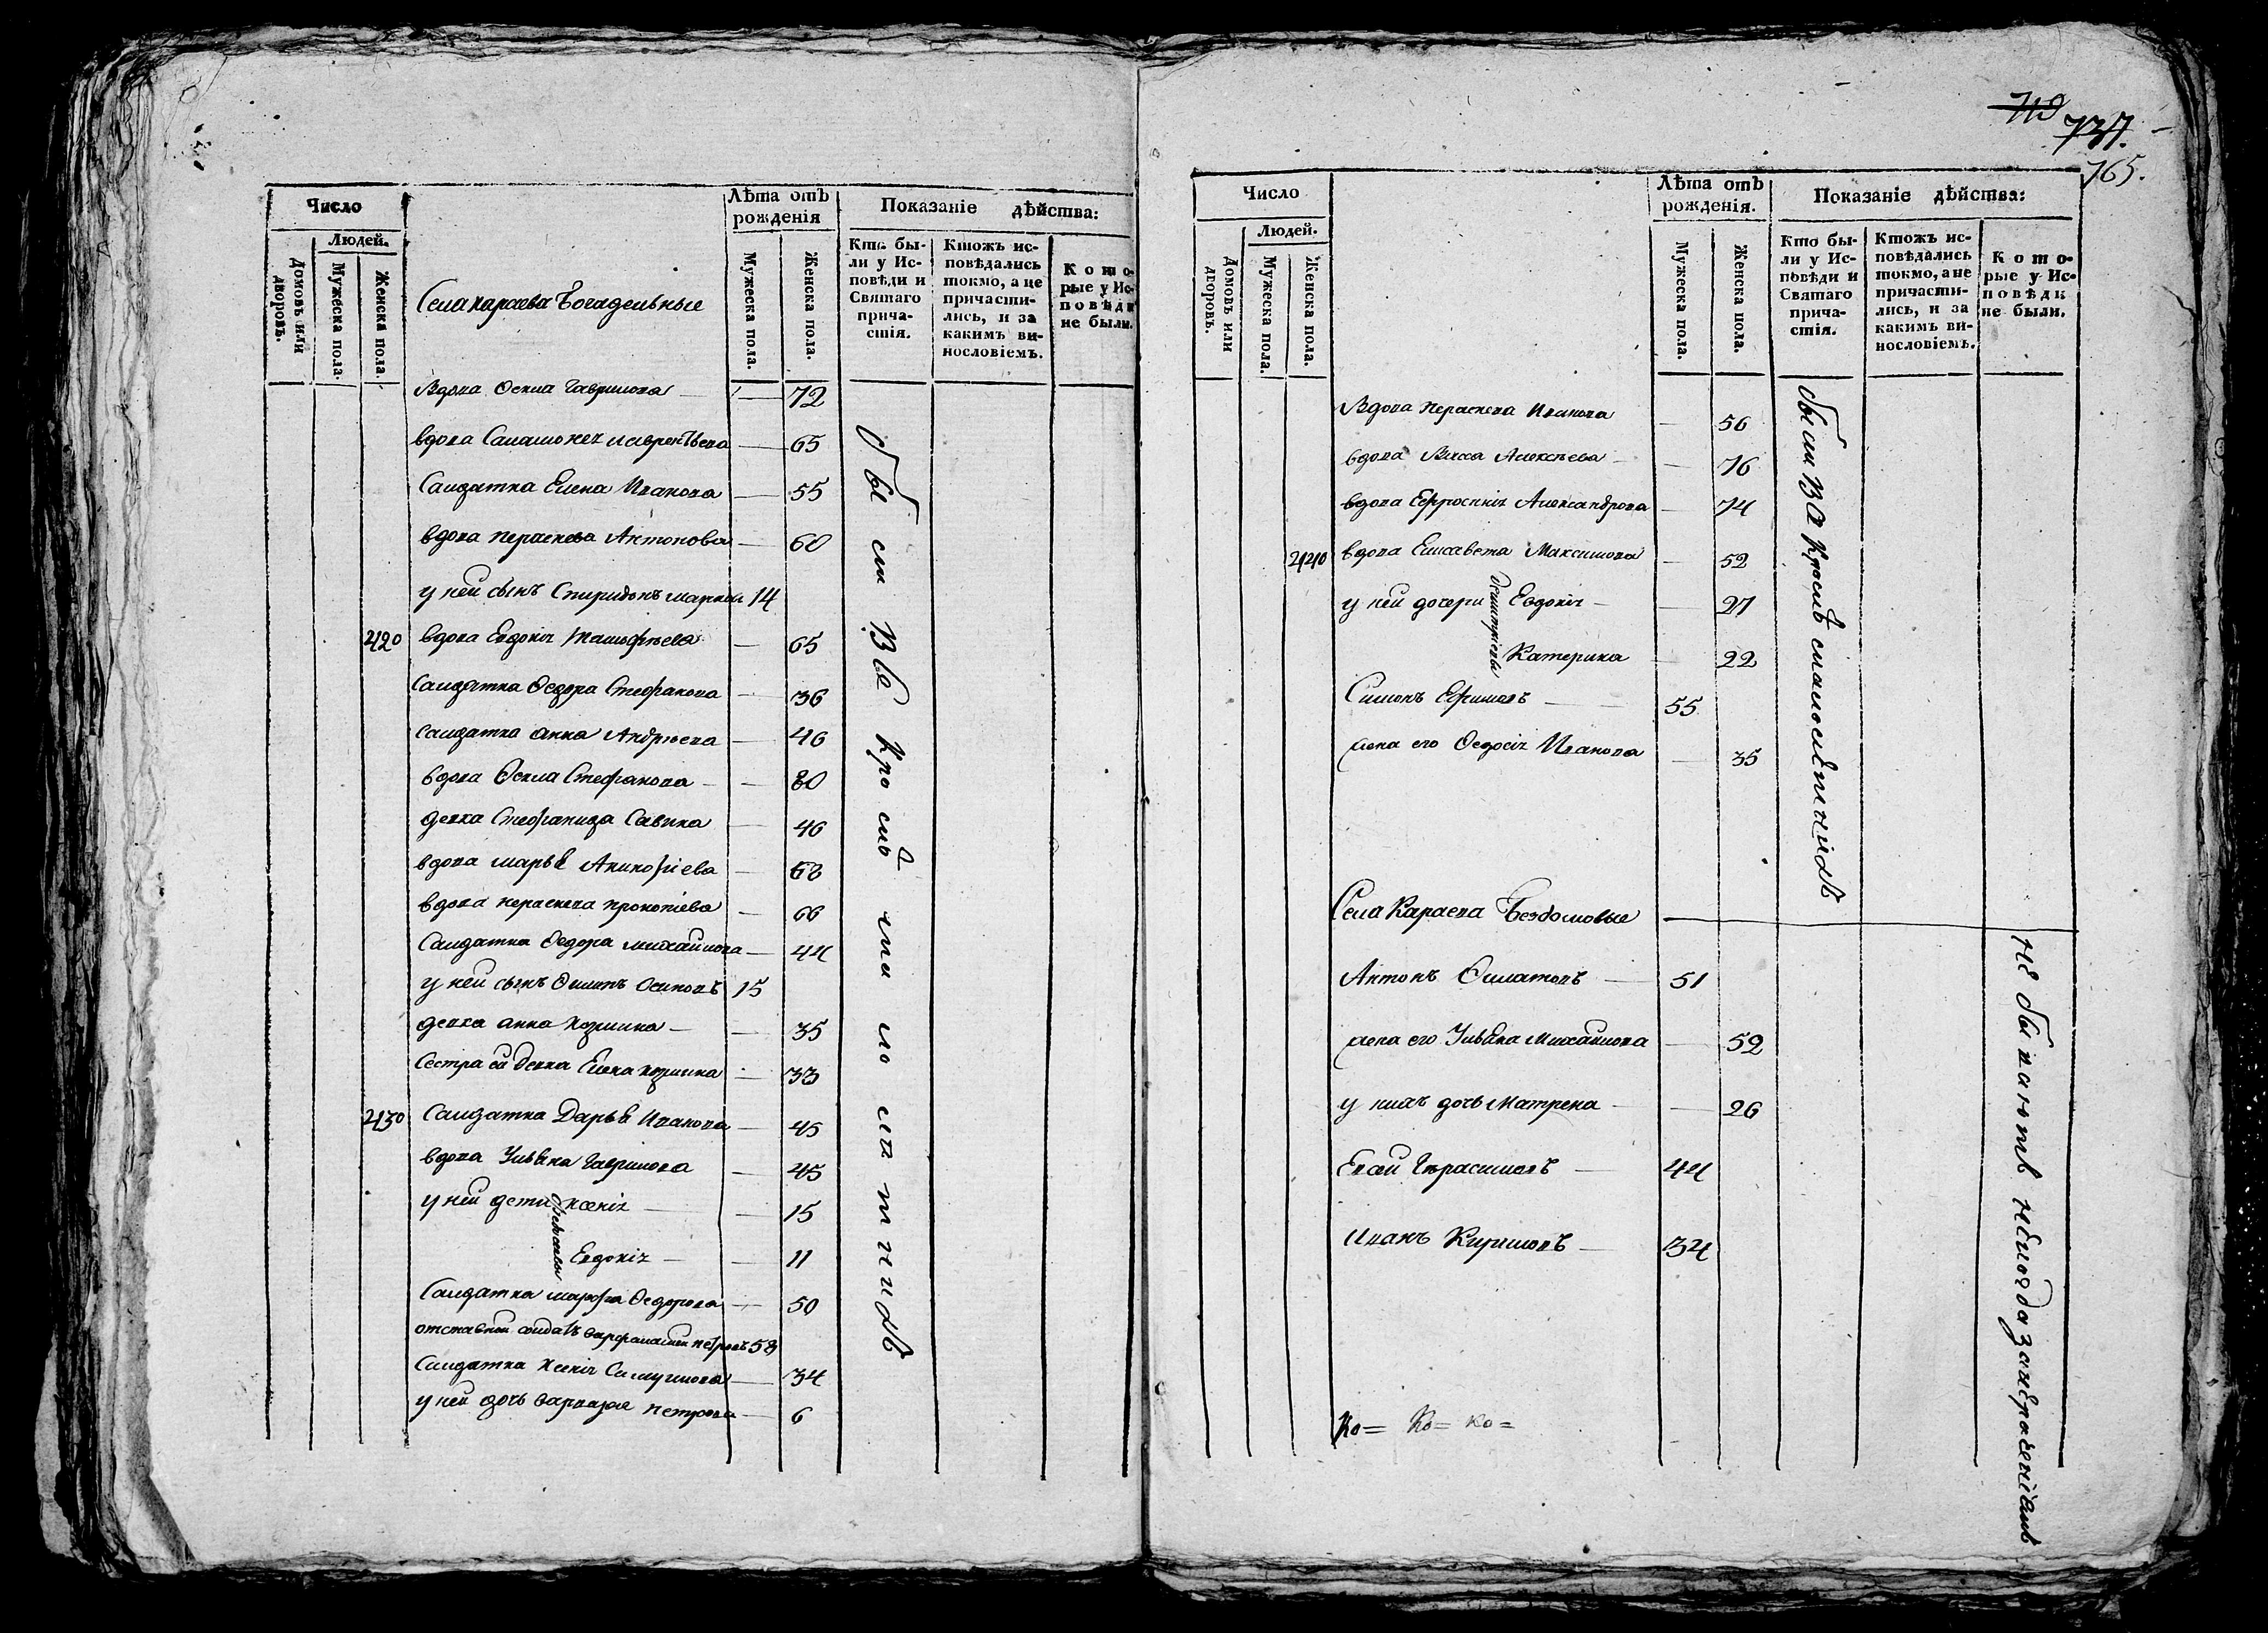 Число
Людей.
Домовъ или дворовъ.
Мужеска пола.
Женска пола.
Села караева Богадельные
Лѣта отъ рожденія
Мужеска пола.
Женска пола.
Показаніе дѣйства:
Кто бы-
ли у Ис-
повѣди и
Святаго
прича-
стія.
Ктожъ ис-
повѣдались
токмо, а не
причасти-
лись, и за
какимъ ви-
нословіемъ.
Кото-
рые у Ис-
повѣди
не были.
Вдова Ѳекла Гаврилова — 72
вдова Саламонея лаврентьева — 65
Салдатка Елена Иванова — 55
вдова параскева Антонова — 60
у ней сынъ Спиридонъ марков 14
420 вдова Евдокія — 65
Салдатка Ѳедора Стефанова — 36
салдатка анна Андрѣева — 46
вдова Ѳекла Стефанова — 80
девка Стефанида Савина — 46
вдова марья — 68
вдова параскева прокопіева — 66
Салдатка Ѳедора михайлова — 44
у ней сынъ Филипъ Осиповъ 15
девка анна козмина — 35
Сестра ей девка Елена козмина — 33
430 Салдатка Дарья Иванова — 45
вдова Ульяна Гаврилова — 45
у ней дети Ксенія — 15
Евдокія — 11
Салдатка марфа Ѳедорова — 50
отставной солдатъ варфаламей петровъ 58
Салдатка Ксенія Самуилова — 34
у ней дочь варвара петрова — 6
713
737.
765.
Число
Людей.
Домовъ или дворовъ.
Мужеска пола.
Женска пола.
Лѣта отъ рожденія.
Мужеска пола.
Женска пола.
Показаніе дѣйства:
Кто бы-
ли у Ис-
повѣди и
Святаго
прича-
стія.
Ктожъ ис-
повѣдались
токмо, а не
причасти-
лись, и за
какимъ ви-
нословіемъ.
Кото-
рые у Ис-
повѣди
не были.
Вдова параскева Иванова — 56
вдова Васса Алексѣева — 76
вдова Ефросинія Александрова — 74
440 вдова Елисавета Максимова — 52
у ней дочери Димитріевы Евдокія — 27
Катерина — 22
Симонъ Ефимовъ — 55
жена его Ѳедосія Иванова — 35
Села Караева Бездомовые
Антонъ Филатовъ — 51
жена его Ульяна Михайлова — 52
у нихъ дочь Матрена — 26
Елсей Герасимовъ — 44
Иванъ Киримовъ — 34
Ко= Ко= ко=